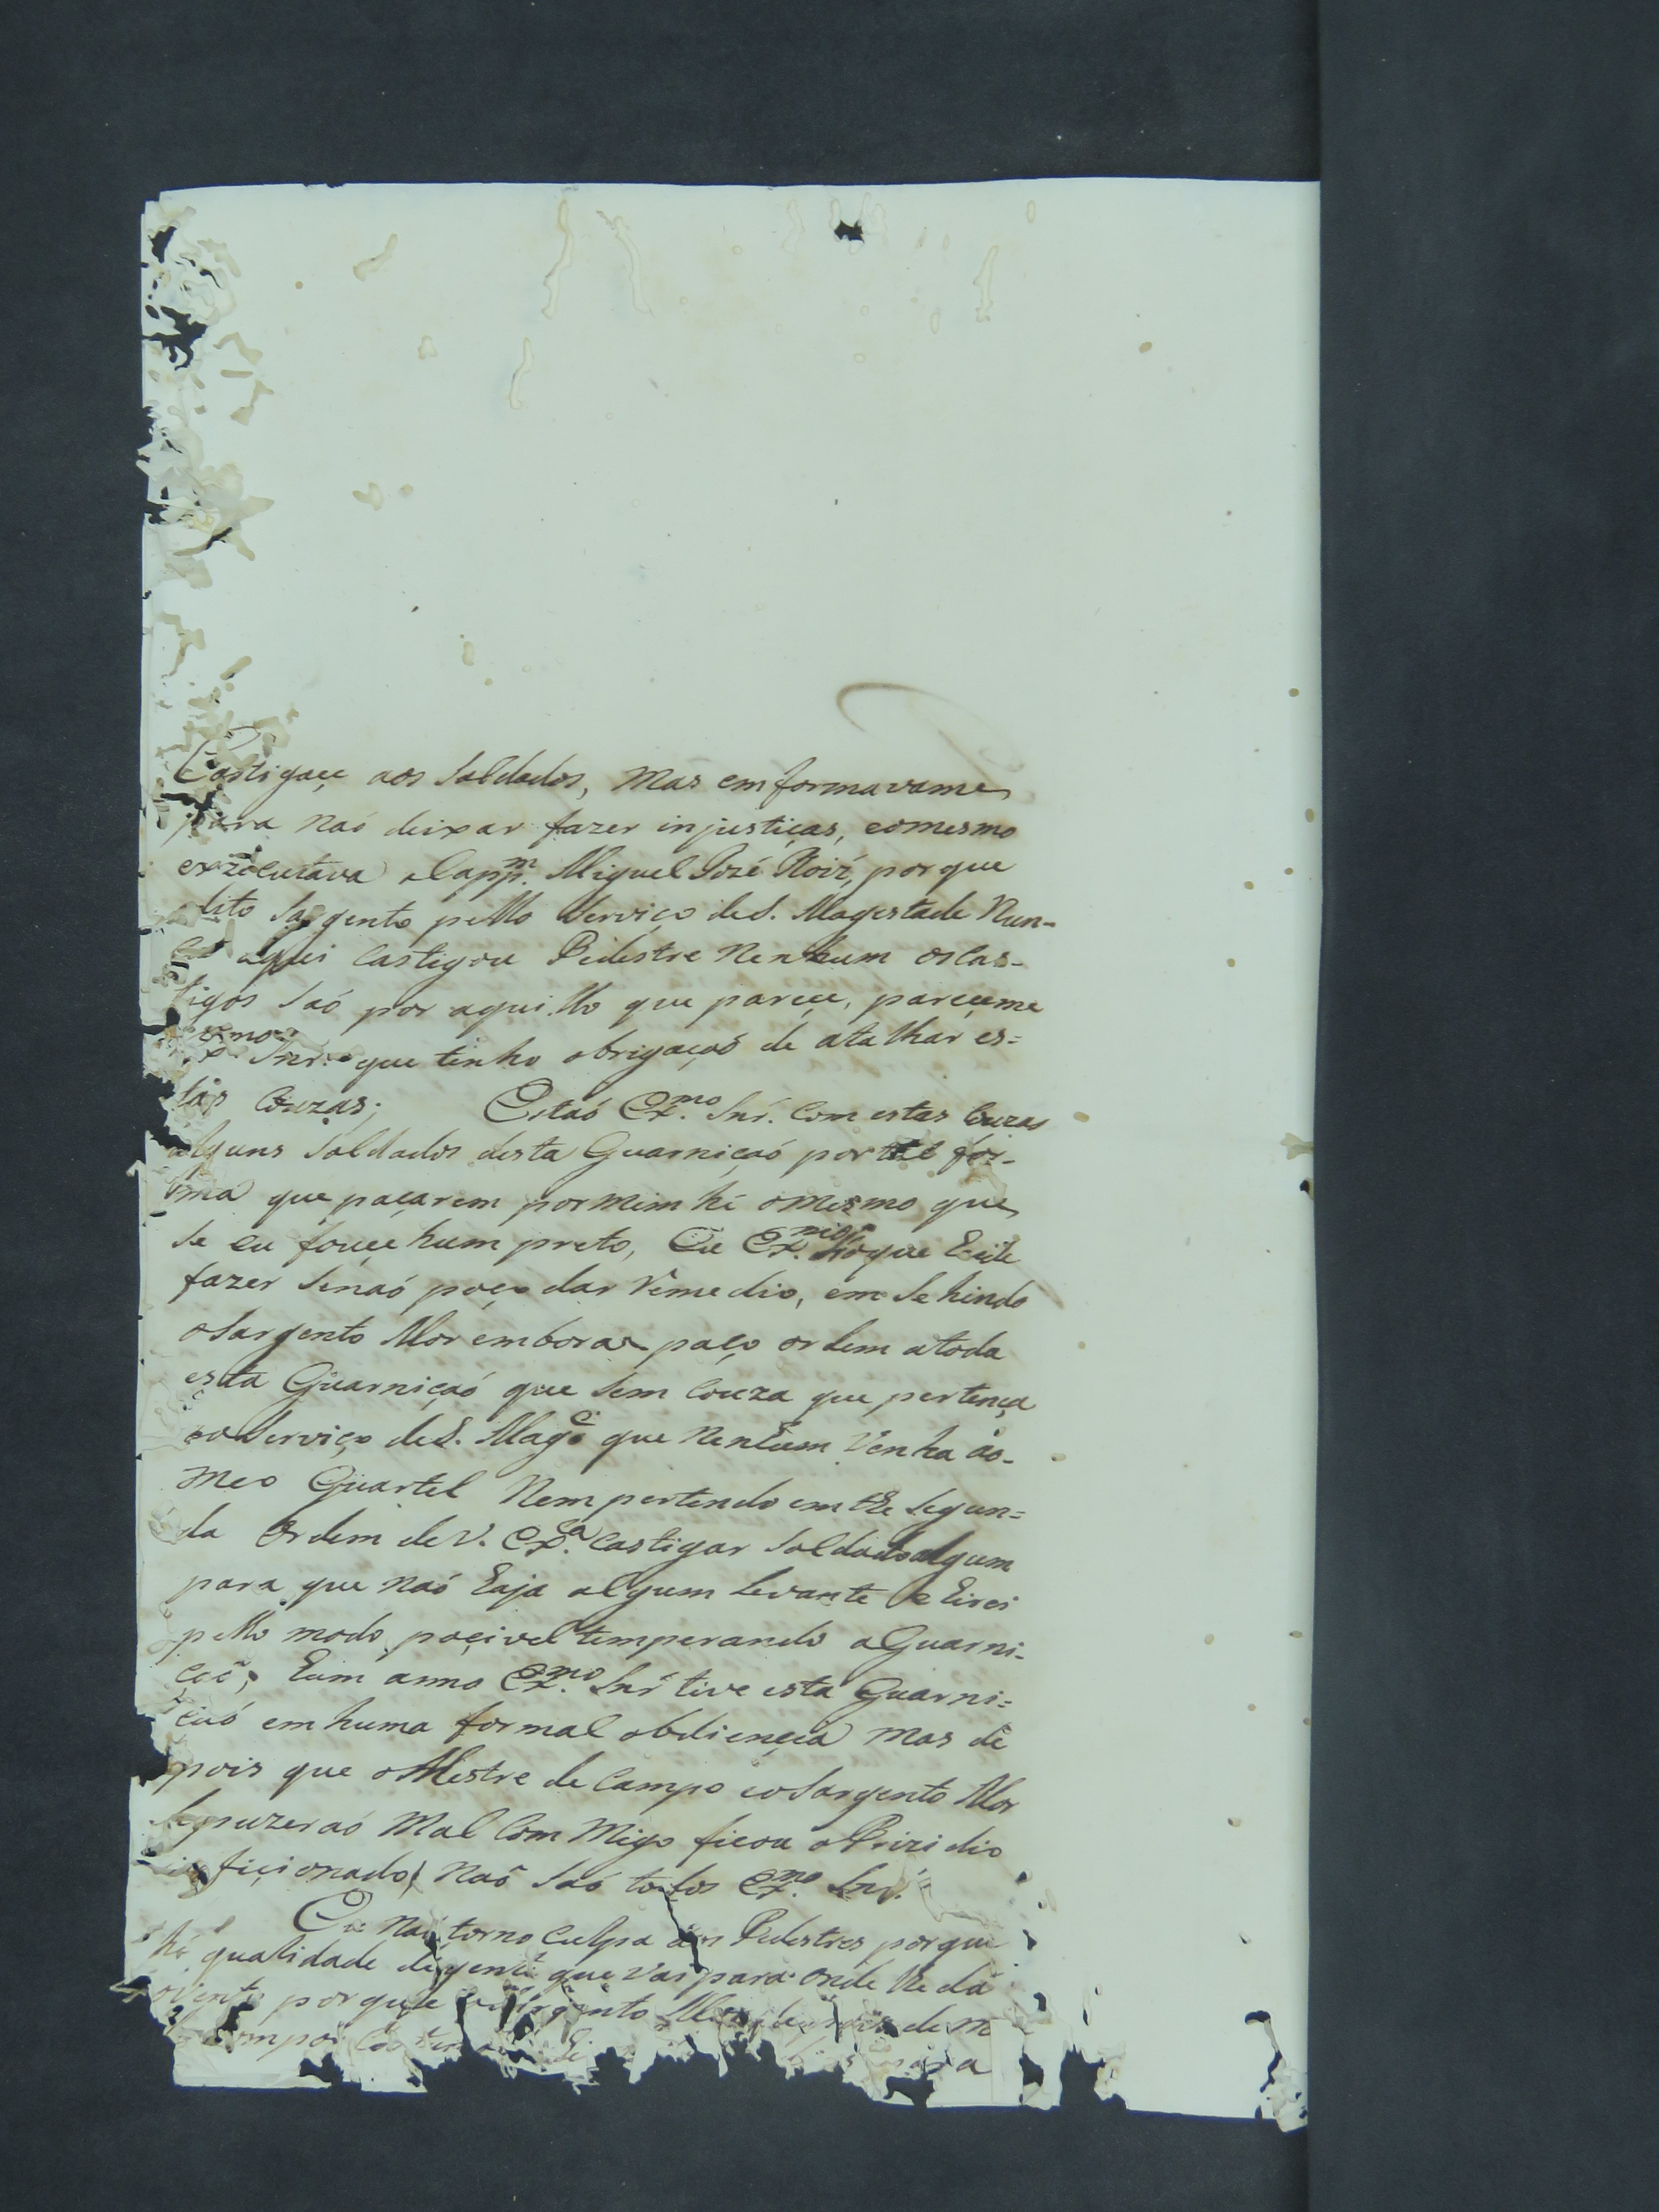 Castigaçe aos Soldados, mas emformavame
para naó deixar fazer injustiças, eomesmo
exzecutava o Capp.m Miguel Jozé Roiz, porque
odito Sargento pello Serviço deS. Magestade Nun-
ca aqui Castigou Pedestre Nenhum osCas-
tigos Saó por aquillo que pareçe, pareçeme
Ex.mo Snr. que tenho obrigaçaó de atalhar es=
tas Couzas; Estaó Ex.mo Snr. Com estas Couzas
alguns Soldados desta Guarniçaó portal for-
ma que paçarem pormim hé omesmo que
Se eu fouçe hum preto, Eu Ex.mo Snr oque Eide
fazer Senaó poço dar Remedio, em Se hindo
oSargento Mor embora paço ordem atoda
esta Guarniçaó que Sem Couza que pertença
aoServiço deS. Mag.e que Nenhum Venha ao-
meo Quartel Nem pertendo em the Segun=
da Ordem de V. Ex.a Castigar Soldadoalgum
para que naó Eaja algum Levante e Eirei
pello modo poçivel temperando aGuarni-
çaó, Eum anno Ex.mo Snr tive esta Guarni=
çaó em huma formal obdiençia mas de
pois que oMestre de Campo eoSargento Mor
Sepuzeraó Mal Com Migo ficou oPrizidio
inficionado, Naó Saó todos Ex.mo Snr.
Eu Naó torno Culpa aos Pedestres porque
hé qualidade degente que Vai para onde lhe dá
ovento porque oSargento Mor de m
Campo para